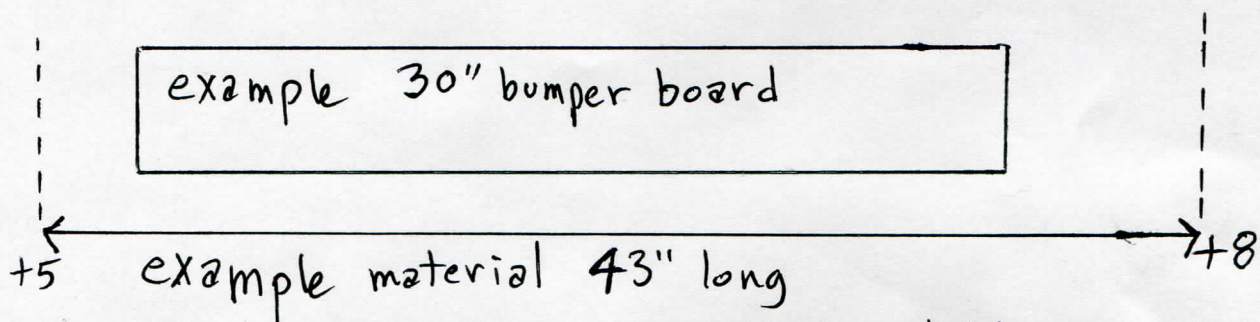 example 30" bumper board
+5 example material 43" long +8